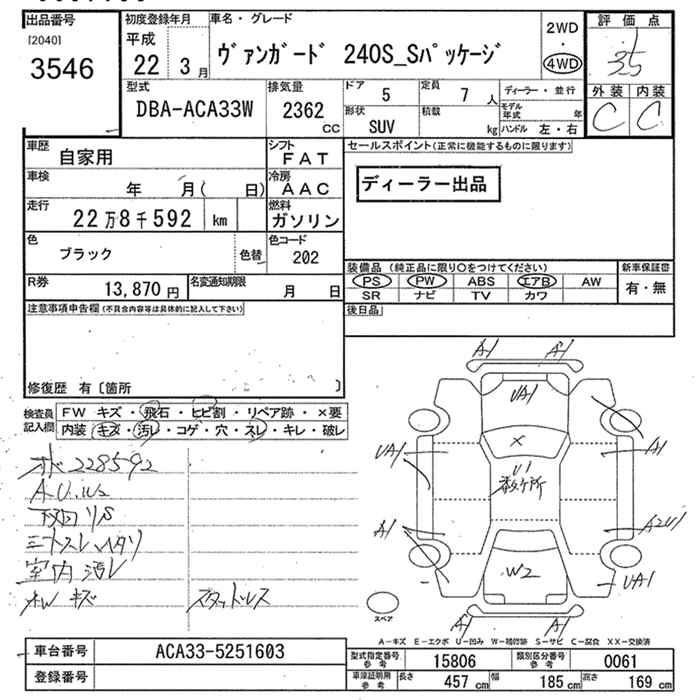 出品番号 初度登録年月 車名・グレード 2WD ・ 4WD 評価点
[2040] 3546 平成 22 3月 ヴァンガード 240S_Sパッケージ 35
外装 内装
C C
型式 DBA-ACA33W 排気量 2362 CC ドア 5 定員 7 人 ディーラー・並行
形状 SUV 積載 kg モデル年式 年 ハンドル 左・右
車歴 自家用 シフト FAT セールスポイント(正常に機能するものに限ります)
車検 年 月( 日) 冷房 AAC ディーラー出品
走行 22万8千592 km 燃料 ガソリン
色 ブラック 色替 色コード 202
装備品 (純正品に限り○をつけてください) 新車保証書
R券 13,870円 名変通知期限 月 日 PS PW ABS エアB AW 有・無
SR ナビ TV カワ
注意事項申告欄(不具合内容等は具体的に記入して下さい) 後日品
修復歴 有〔箇所 〕
検査員記入欄 FW キズ・飛石・ヒビ割・リペア跡・×要
内装 キズ・汚レ・コゲ・穴・スレ・キレ・破レ
228592
室内 汚レ
AW キズ スタッドレス
A1 A1
UA1
×
UA1 U1 A1
数ヶ所
A1 A2U1
W2 UA1
A1 A1
スペア
A-キズ E-エクボ U-凹み W-補修跡 S-サビ C-腐食 XX-交換済
車台番号 ACA33-5251603 型式指定番号 参考 15806 類別区分番号 参考 0061
登録番号 車検証明用 参考 長さ 457 cm 幅 185 cm 高さ 169 cm